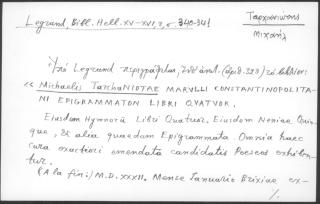 Legrand, Bibl. Hell. XV-XVI, 3, σ. 340-341
Ταρχανιώτης
Μιχαήλ
Ὑπὸ Legrand περιγράφεται, (ἀριθ. 323) τὸ βιβλίον:
« Michaelis TarchaNIOTAE MARVLLI CONSTANTINOPOLITA-
NI EPIGRAMMATON LIBRI QVATVOR.
Eiusdem Hymnorū Libri Quatuor. Eiusdem Noniae Quin-
que, & alia quaedam Epigrammata. Omnia haec
cura exactiori emendata candidatis Poeseos exhiben-
tur.
(A la fin:) M.D.XXXII. Mense Ianuario Brixiae ex-
%